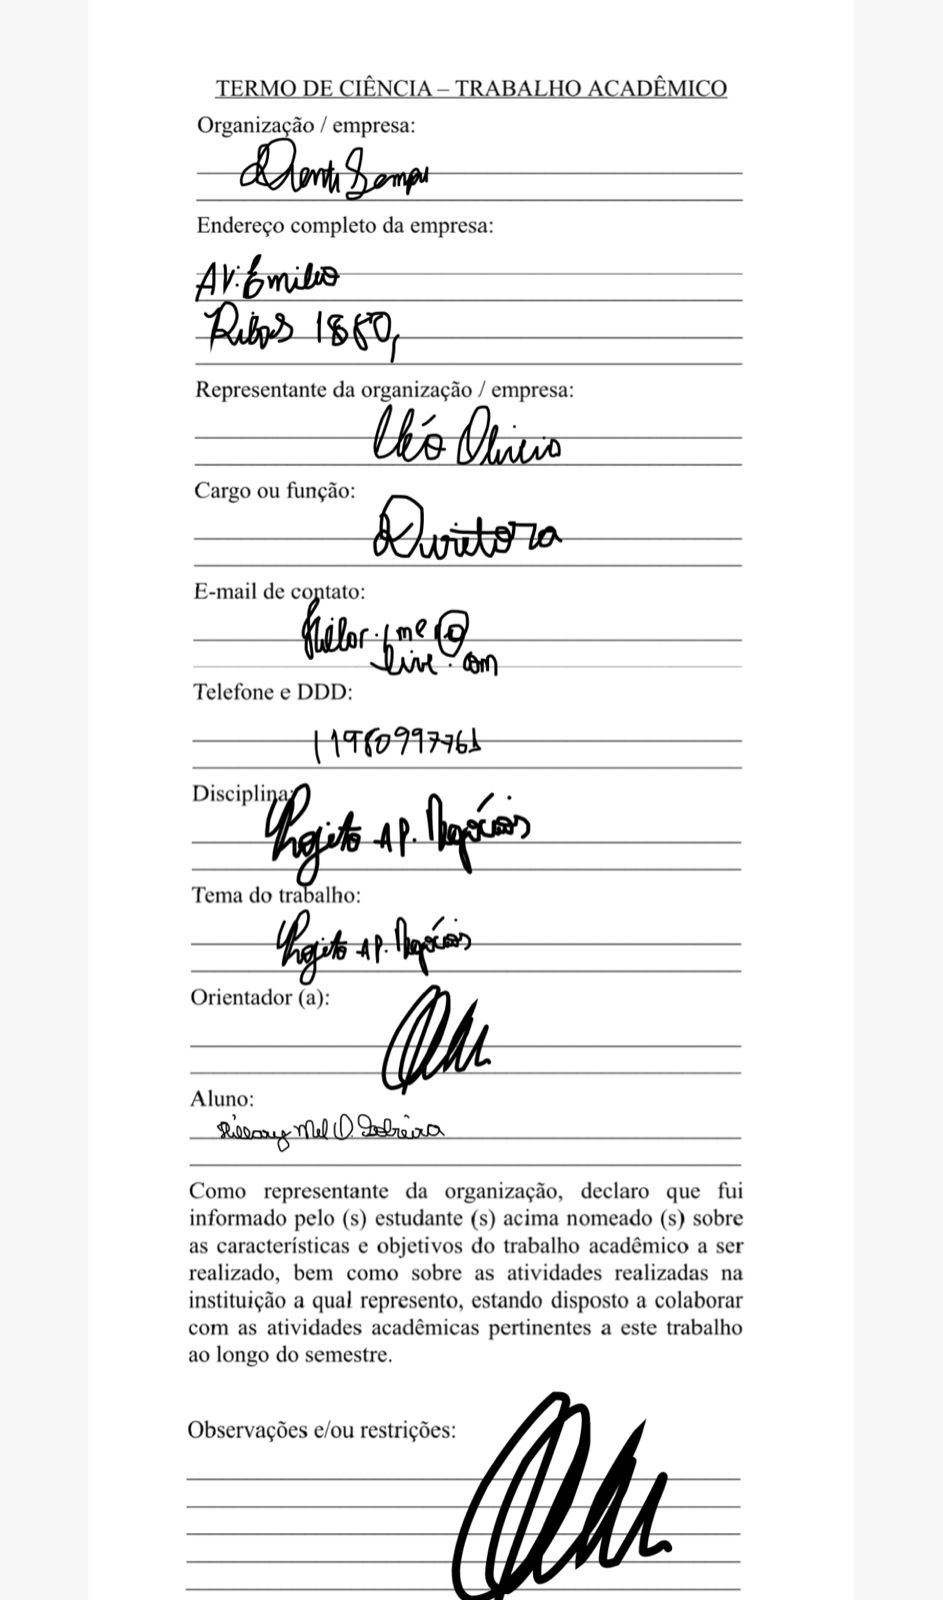 TERMO DE CIÊNCIA – TRABALHO ACADÊMICO
Organização / empresa:
Endereço completo da empresa:
Av. Emilio
Ribas 1880,
Representante da organização / empresa:
Cléo
Cargo ou função:
Diretora
E-mail de contato:
live.com
Telefone e DDD:
11980997761
Disciplina:
Projeto AP. Negócios
Tema do trabalho:
Projeto AP. Negócios
Orientador (a):
Aluno:
Mel O.
Como representante da organização, declaro que fui
informado pelo (s) estudante (s) acima nomeado (s) sobre
as características e objetivos do trabalho acadêmico a ser
realizado, bem como sobre as atividades realizadas na
instituição a qual represento, estando disposto a colaborar
com as atividades acadêmicas pertinentes a este trabalho
ao longo do semestre.
Observações e/ou restrições: